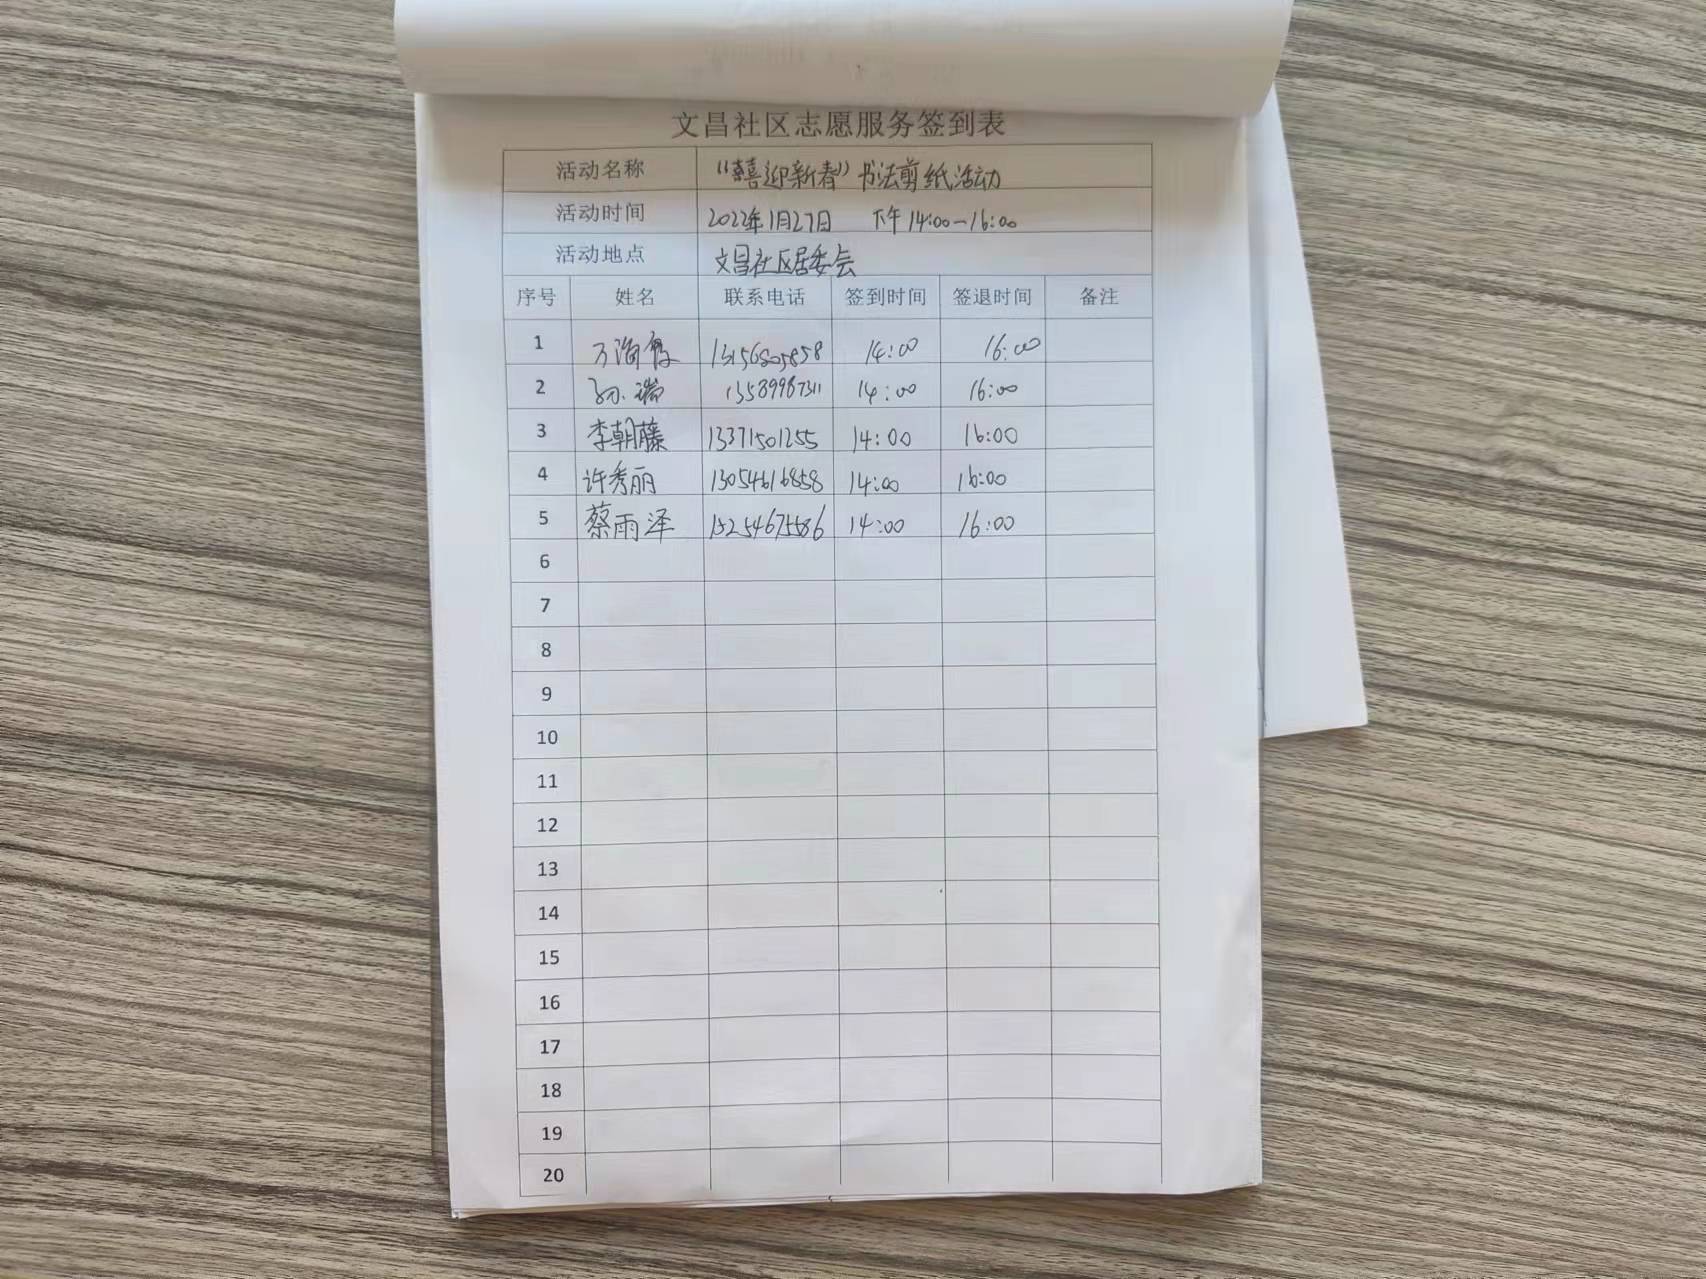 文昌社区志愿服务签到表
活动名称 “囍迎新春”书法剪纸活动
活动时间 2022年1月27日 下午14:00-16:00
活动地点 文昌社区居委会
序号 姓名 联系电话 签到时间 签退时间 备注
1 万海霞 13156805858 14:00 16:00
2 孙瑞 13589987311 14:00 16:00
3 李朝藤 13371501255 14:00 16:00
4 许秀丽 13054616858 14:00 16:00
5 蔡雨泽 15254675586 14:00 16:00
6
7
8
9
10
11
12
13
14
15
16
17
18
19
20